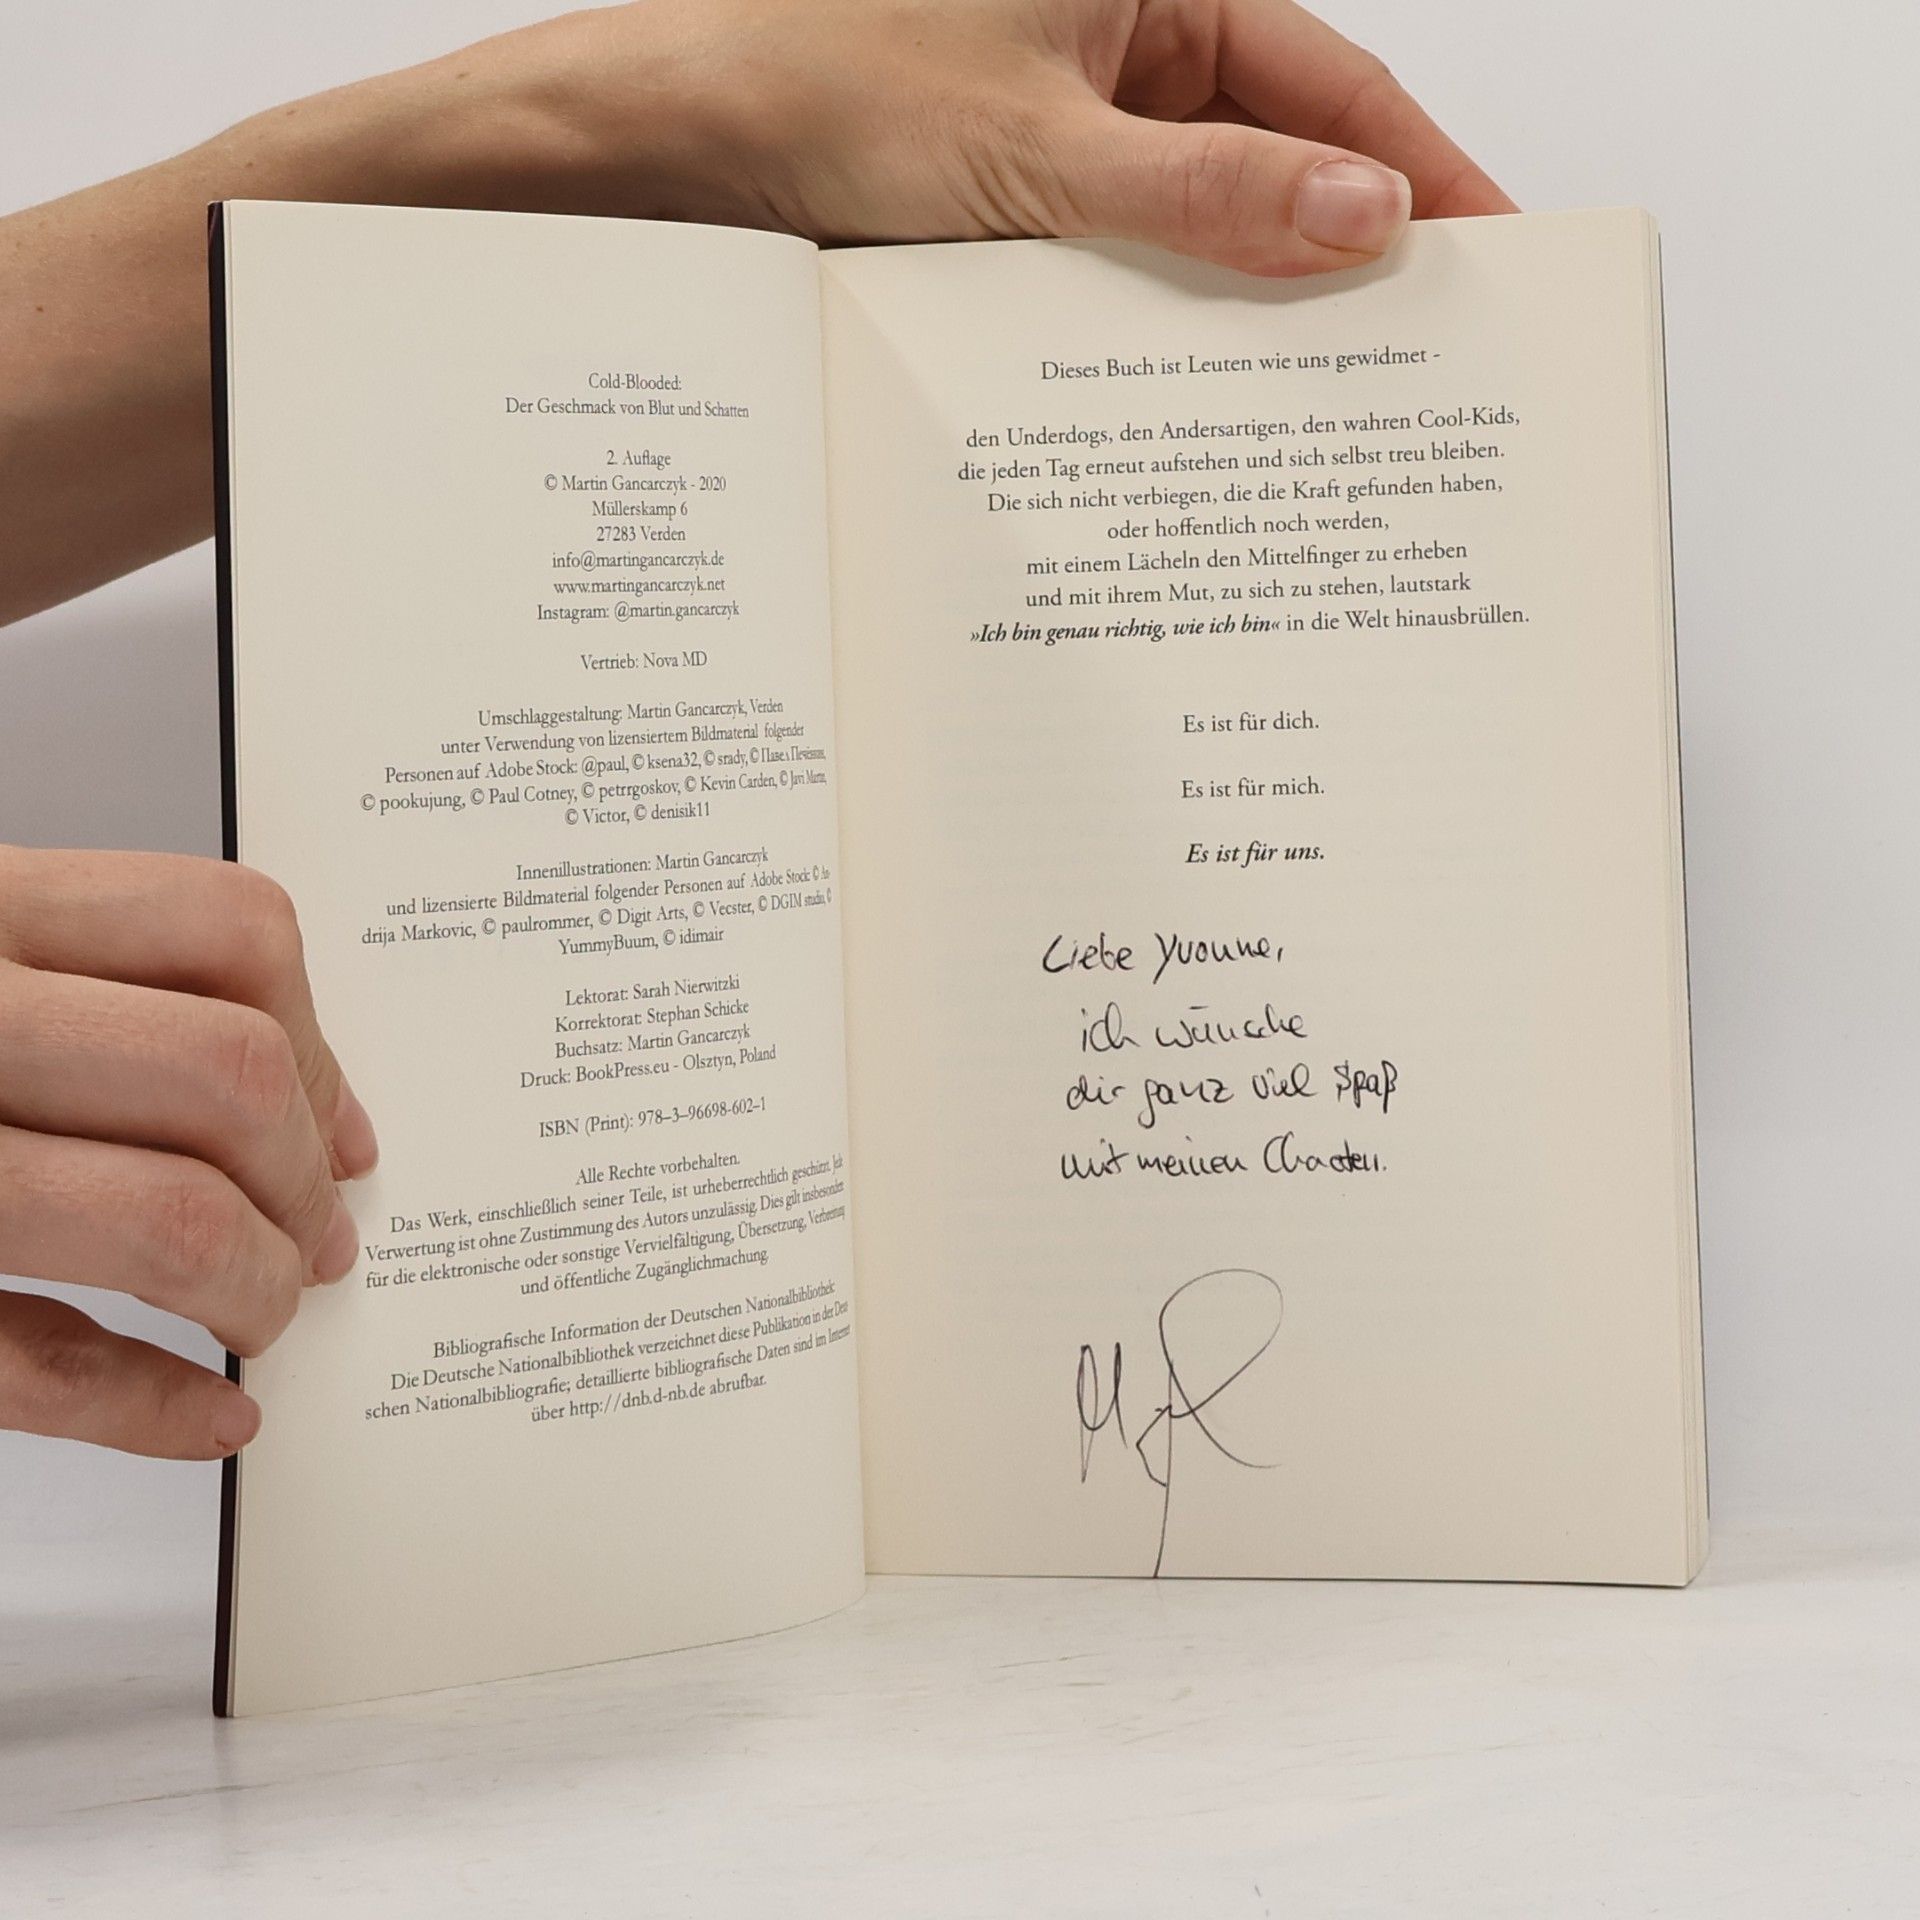 Cold-Blooded:
Der Geschmack von Blut und Schatten
2. Auflage
© Martin Gancarczyk - 2020
Müllerskamp 6
27283 Verden
info@martingancarczyk.de
www.martingancarczyk.net
Instagram: @martin.gancarczyk
Vertrieb: Nova MD
Umschlaggestaltung: Martin Gancarczyk, Verden
unter Verwendung von lizensiertem Bildmaterial folgender
Personen auf Adobe Stock: @paul, © ksena32, © srady, ©
© pookujung, © Paul Cotney, © petrrgoskov, © Kevin Carden, © Javi
© Victor, © denisik11
Innenillustrationen: Martin Gancarczyk
und lizensierte Bildmaterial folgender Personen auf Adobe Stock: © An-
drija Markovic, © paulrommer, © Digit Arts, © Vecster, © DGIM studio, ©
YummyBuum, © idimair
Lektorat: Sarah Nierwitzki
Korrektorat: Stephan Schicke
Buchsatz: Martin Gancarczyk
Druck: BookPress.eu - Olsztyn, Poland
ISBN (Print): 978–3–96698-602–1
Alle Rechte vorbehalten.
Das Werk, einschließlich seiner Teile, ist urheberrechtlich geschützt. Jede
Verwertung ist ohne Zustimmung des Autors unzulässig. Dies gilt insbesondere
für die elektronische oder sonstige Vervielfältigung, Übersetzung, Verbreitung
und öffentliche Zugänglichmachung.
Bibliografische Information der Deutschen Nationalbibliothek
Die Deutsche Nationalbibliothek verzeichnet diese Publikation in der Deut-
schen Nationalbibliografie; detaillierte bibliografische Daten sind im Internet
über http://dnb.d-nb.de abrufbar.
Dieses Buch ist Leuten wie uns gewidmet -
den Underdogs, den Andersartigen, den wahren Cool-Kids,
die jeden Tag erneut aufstehen und sich selbst treu bleiben.
Die sich nicht verbiegen, die die Kraft gefunden haben,
oder hoffentlich noch werden,
mit einem Lächeln den Mittelfinger zu erheben
und mit ihrem Mut, zu sich zu stehen, lautstark
»Ich bin genau richtig, wie ich bin« in die Welt hinausbrüllen.
Es ist für dich.
Es ist für mich.
Es ist für uns.
Liebe Yvonne,
ich wünsche
dir ganz viel Spaß
mit meinen Chaoten.